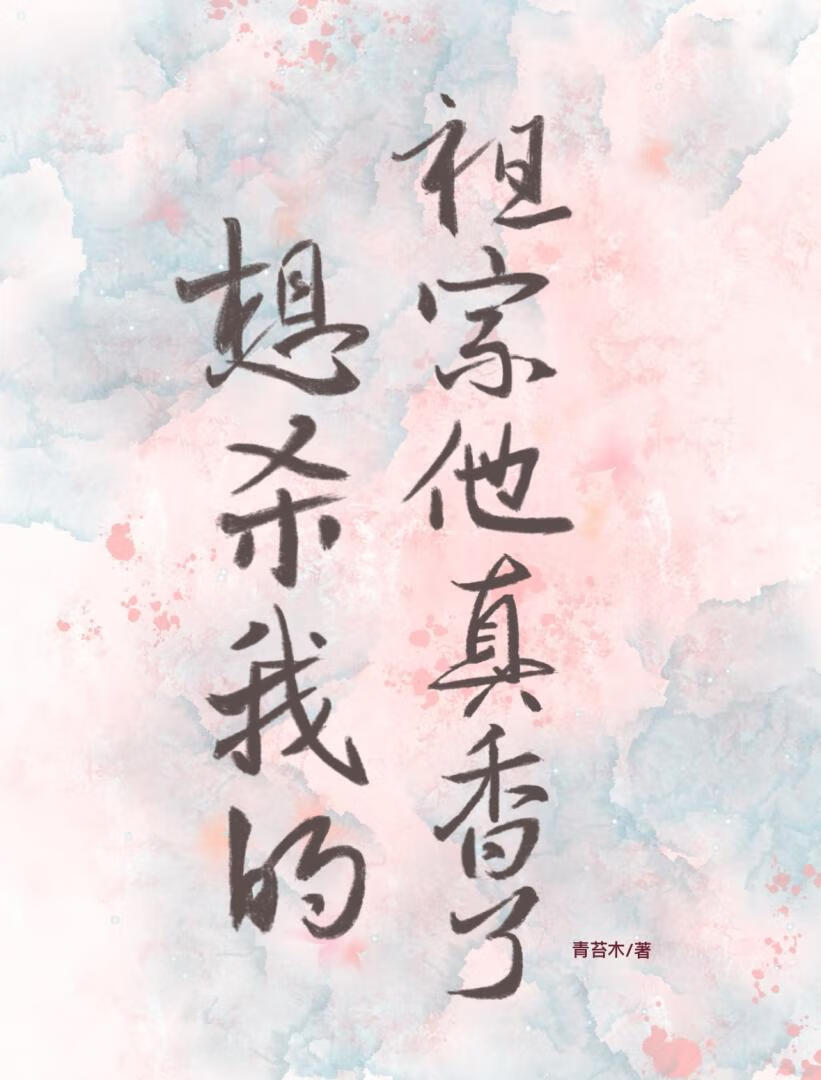 想杀我的
祖宗他真香了
青苔木/著